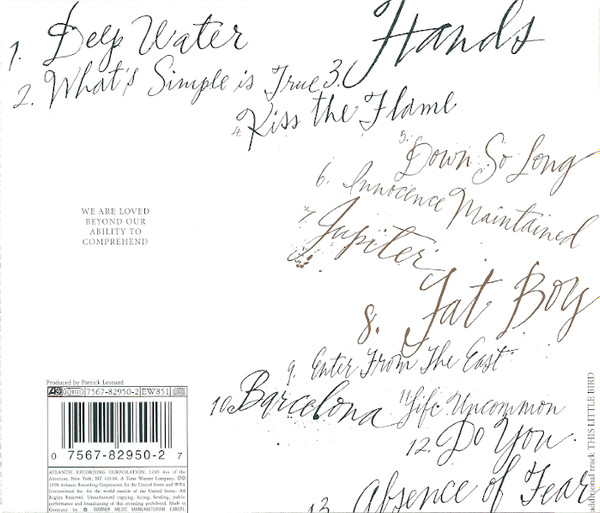 1. Deep Water
2. What's Simple is True
3. Hands
4. Kiss the Flame
5. Down So Long
6. Innocence Maintained
7. Jupiter
8. Fat Boy
9. Enter From The East
10. Barcelona
11. Life Uncommon
12. Do You
13. Absence of Fear
additional track THIS LITTLE BIRD
WE ARE LOVED
BEYOND OUR
ABILITY TO
COMPREHEND
Produced by Patrick Leonard
7567-82950-2 EW851
0 7567-82950-2 7
ATLANTIC RECORDING CORPORATION, 1290 Ave of the
Americas, New York, NY 10104. A Time Warner Company.
1998 Atlantic Recording Corporation for the United States and WEA
International Inc. for the world outside of the United States. All
Rights Reserved. Unauthorized copying, hiring, lending, public
performance and broadcasting of this recording prohibited. Made in
Germany by WARNER MUSIC MANUFACTURING EUROPE.